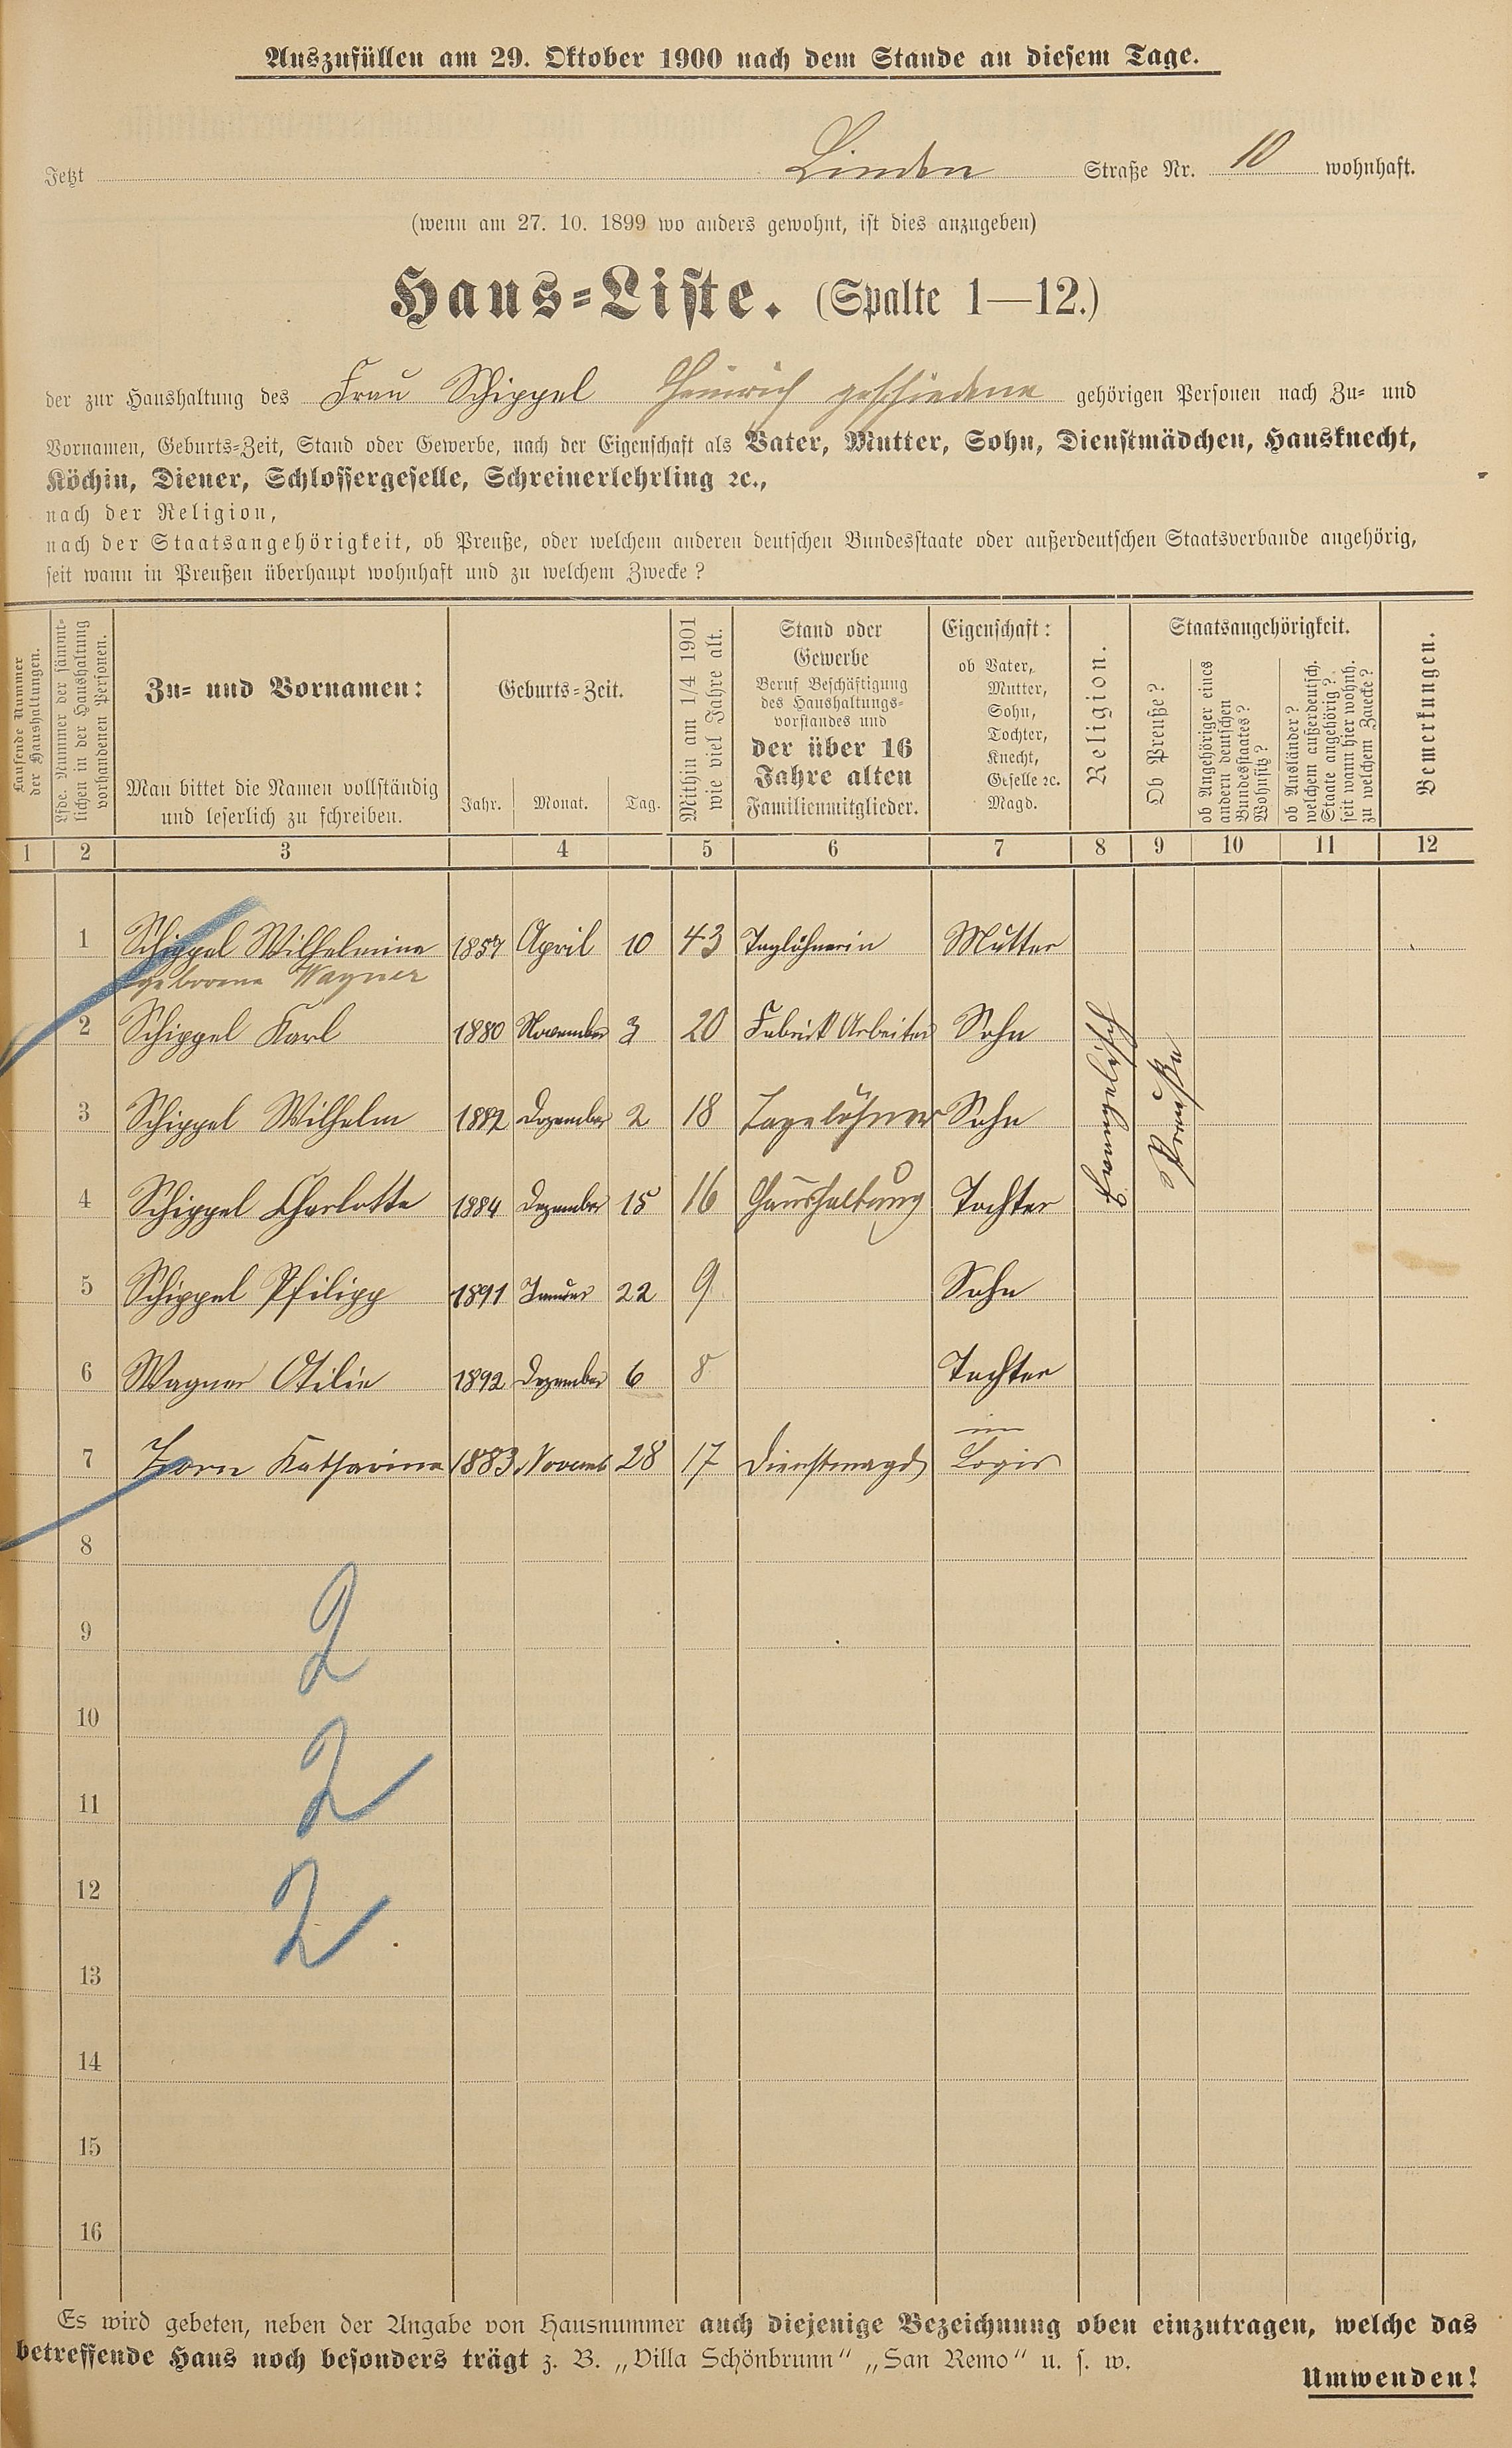 Auszufüllen am 29. Oktober 1900 nach dem Stande an diesem Tage.
Jetzt Linden Straße Nr. 10 wohnhaft.
(wenn am 27. 10. 1899 wo anders gewohnt, ist dies anzugeben)
Haus-Liste. (Spalte 1—12.)
der zur Haushaltung des Frau Schippel Heinrich geschiedene gehörigen Personen nach Zu- und
Vornamen, Geburts-Zeit, Stand oder Gewerbe, nach der Eigenschaft als Vater, Mutter, Sohn, Dienstmädchen, Hausknecht,
Köchin, Diener, Schlossergeselle, Schreinerlehrling ꝛc.,
nach der Religion,
nach der Staatsangehörigkeit, ob Preuße, oder welchem anderen deutschen Bundesstaate oder außerdeutschen Staatsverbande angehörig,
seit wann in Preußen überhaupt wohnhaft und zu welchem Zwecke?
Laufende Nummer
der Haushaltungen.
Lfde. Nummer der sämmt-
lichen in der Haushaltung
vorhandenen Personen.
Zu- und Vornamen:
Man bittet die Namen vollständig
und leserlich zu schreiben.
Geburts-Zeit.
Jahr. Monat. Tag.
Mithin am 1/4 1901
wie viel Jahre alt.
Stand oder
Gewerbe
Beruf Beschäftigung
des Haushaltungs-
vorstandes und
der über 16
Jahre alten
Familienmitglieder.
Eigenschaft:
ob Vater,
Mutter,
Sohn,
Tochter,
Knecht,
Geselle ꝛc.
Magd.
Religion.
Staatsangehörigkeit.
Ob Preuße?
ob Angehöriger eines
andern deutschen
Bundesstaates?
Wohnsitz?
ob Ausländer?
welchem außerdeutsch.
Staate angehörig?
seit wann hier wohnh.
zu welchem Zwecke?
Bemerkungen.
1 2 3 4 5 6 7 8 9 10 11 12
1 Schippel Wilhelmine 1857 April 10 43 Taglöhnerin Mutter
geborene Wagner
2 Schippel Karl 1880 November 3 20 Fabrik Arbeiter Sohn
3 Schippel Wilhelm 1882 Dezember 2 18 Tagelöhner Sohn
4 Schippel Charlotte 1884 Dezember 15 16 Haushaltung Tochter
5 Schippel Philipp 1891 Januar 22 9 Sohn
6 Wagner Otilie 1892 Dezember 6 8 Tochter
7 Zorn Katharina 1883 Novemb 28 17 Dienstmagd im
Logis
Evangelisch
Preuße
8
9
2
10
11
2
12
2
13
14
15
16
Es wird gebeten, neben der Angabe von Hausnummer auch diejenige Bezeichnung oben einzutragen, welche das
betreffende Haus noch besonders trägt z. B. „Villa Schönbrunn“ „San Remo“ u. s. w.
Umwenden!